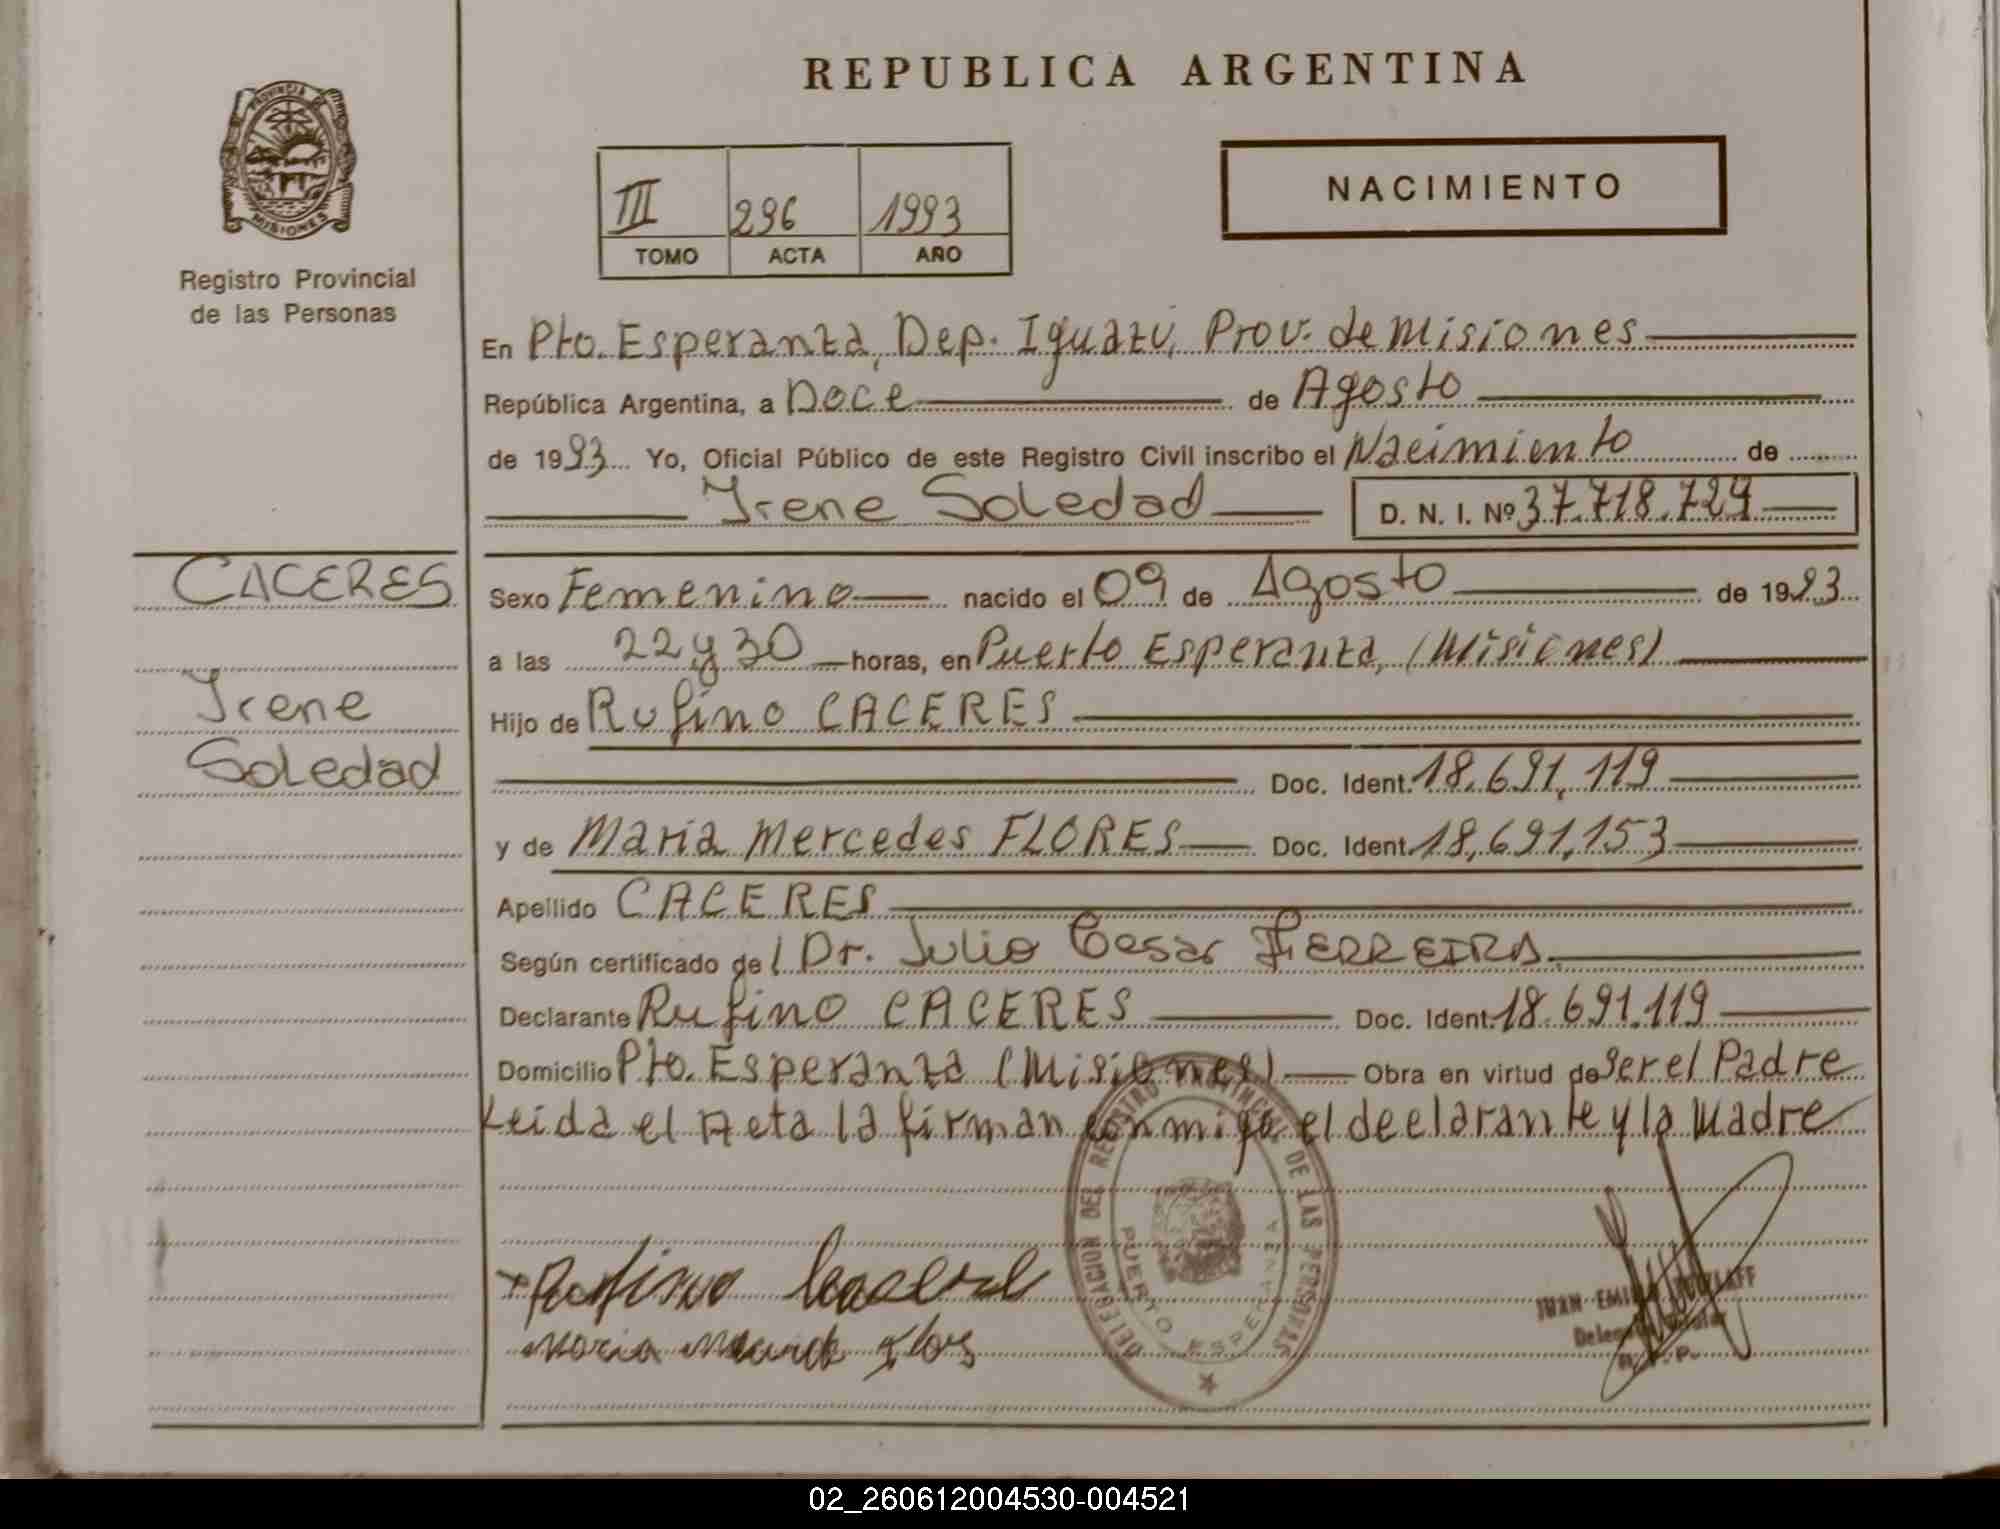 REPUBLICA ARGENTINA
PROVINCIA DE
MISIONES
Registro Provincial
de las Personas
III 296 1993
TOMO ACTA AÑO
NACIMIENTO
En Pto. Esperanza, Dep. Iguazú, Prov. de Misiones
República Argentina, a Doce de Agosto
de 1993 Yo, Oficial Público de este Registro Civil inscribo el Nacimiento de
Irene Soledad D. N. I. Nº 37.718.729
CACERES
Irene
Soledad
Sexo Femenino nacido el 09 de Agosto de 1993
a las 22 y 30 horas, en Puerto Esperanza, (Misiones)
Hijo de Rufino CACERES
Doc. Ident. 18.691.119
y de Maria Mercedes FLORES Doc. Ident. 18.691.153
Apellido CACERES
Según certificado del Dr. Julio Cesar FERREIRA
Declarante Rufino CACERES Doc. Ident. 18.691.119
Domicilio Pto. Esperanza (Misiones) Obra en virtud de ser el Padre
Leida el Acta la firman conmigo el declarante y la Madre
DELEGACION DEL REGISTRO PROVINCIAL DE LAS PERSONAS
PUERTO ESPERANZA
Rufino
Maria
JUAN
02_260612004530-004521